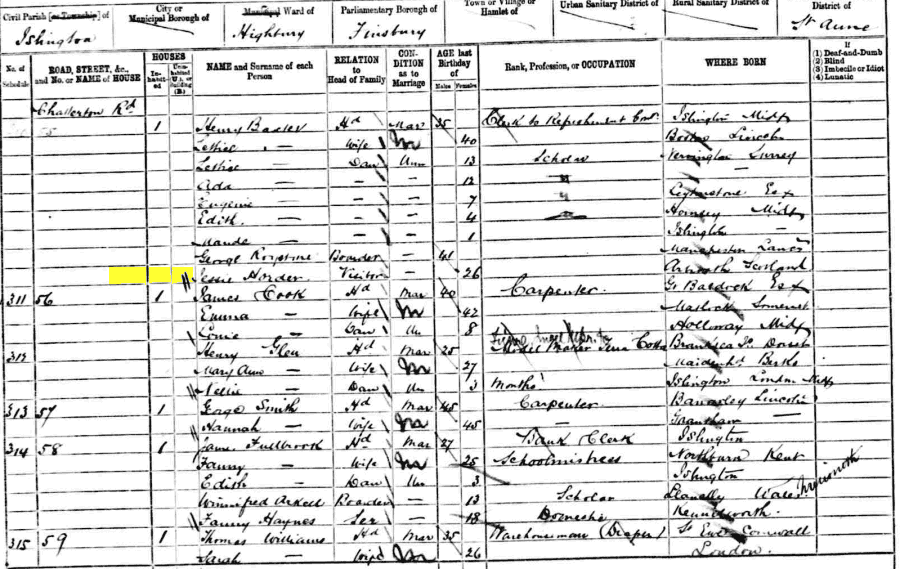 Civil Parish [or Township] of City or Municipal Borough of Municipal Ward of Parliamentary Borough of Town or Village or Hamlet of Urban Sanitary District of Rural Sanitary District of District of
Islington Highbury Finsbury St Anne
No. of Schedule ROAD, STREET, &c., and No. or NAME of HOUSE HOUSES Inhabited Uninhabited (U.), or Building (B.) NAME and Surname of each Person RELATION to Head of Family CONDITION as to Marriage AGE last Birthday of Males Females Rank, Profession, or OCCUPATION WHERE BORN If (1) Deaf-and-Dumb (2) Blind (3) Imbecile or Idiot (4) Lunatic
Chatterton Rd
55 1 Henry Baxter Hd Mar 35 Clerk to Islington Midx
— Wife 40 Boston Lincoln
— Daur Unm 13 Scholar Surrey
Ada — — 12 "
Eugenie — 7 " Leytonstone Esx
Edith — 4 Hornsey Midx
Maude — 1 Islington —
George Boarder — 41 Manchester Lancs
Jessie Horder Visitor — 26 Scotland
311 56 1 James Cook Hd Mar 40 Carpenter Gt Esx
Emma — Wife 42 Somerset
— Daur Un 8 Holloway Midx
312 Henry Glen Hd Mar 25 Model Maker Dorset
Mary Ann — Wife 27 Maidenhd Berks
Nellie — Daur Un 3 Months Islington London Midx
313 57 1 George Smith Hd Mar 45 Carpenter Lincoln
Hannah — Wife 45 Grantham —
314 58 1 James Fullbrook Hd Mar 27 Bank Clerk Islington
Fanny — Wife 25 Schoolmistress Kent
Edith — Daur Un 3 Islington
Winnifred Boarder — 13 Scholar Llanelly Wales
Fanny Haynes Ser — 18 Domestic
315 59 1 Thomas Williams Hd Mar 35 Warehouseman (Draper) St Ewe Cornwall
Sarah — Wife 26 London